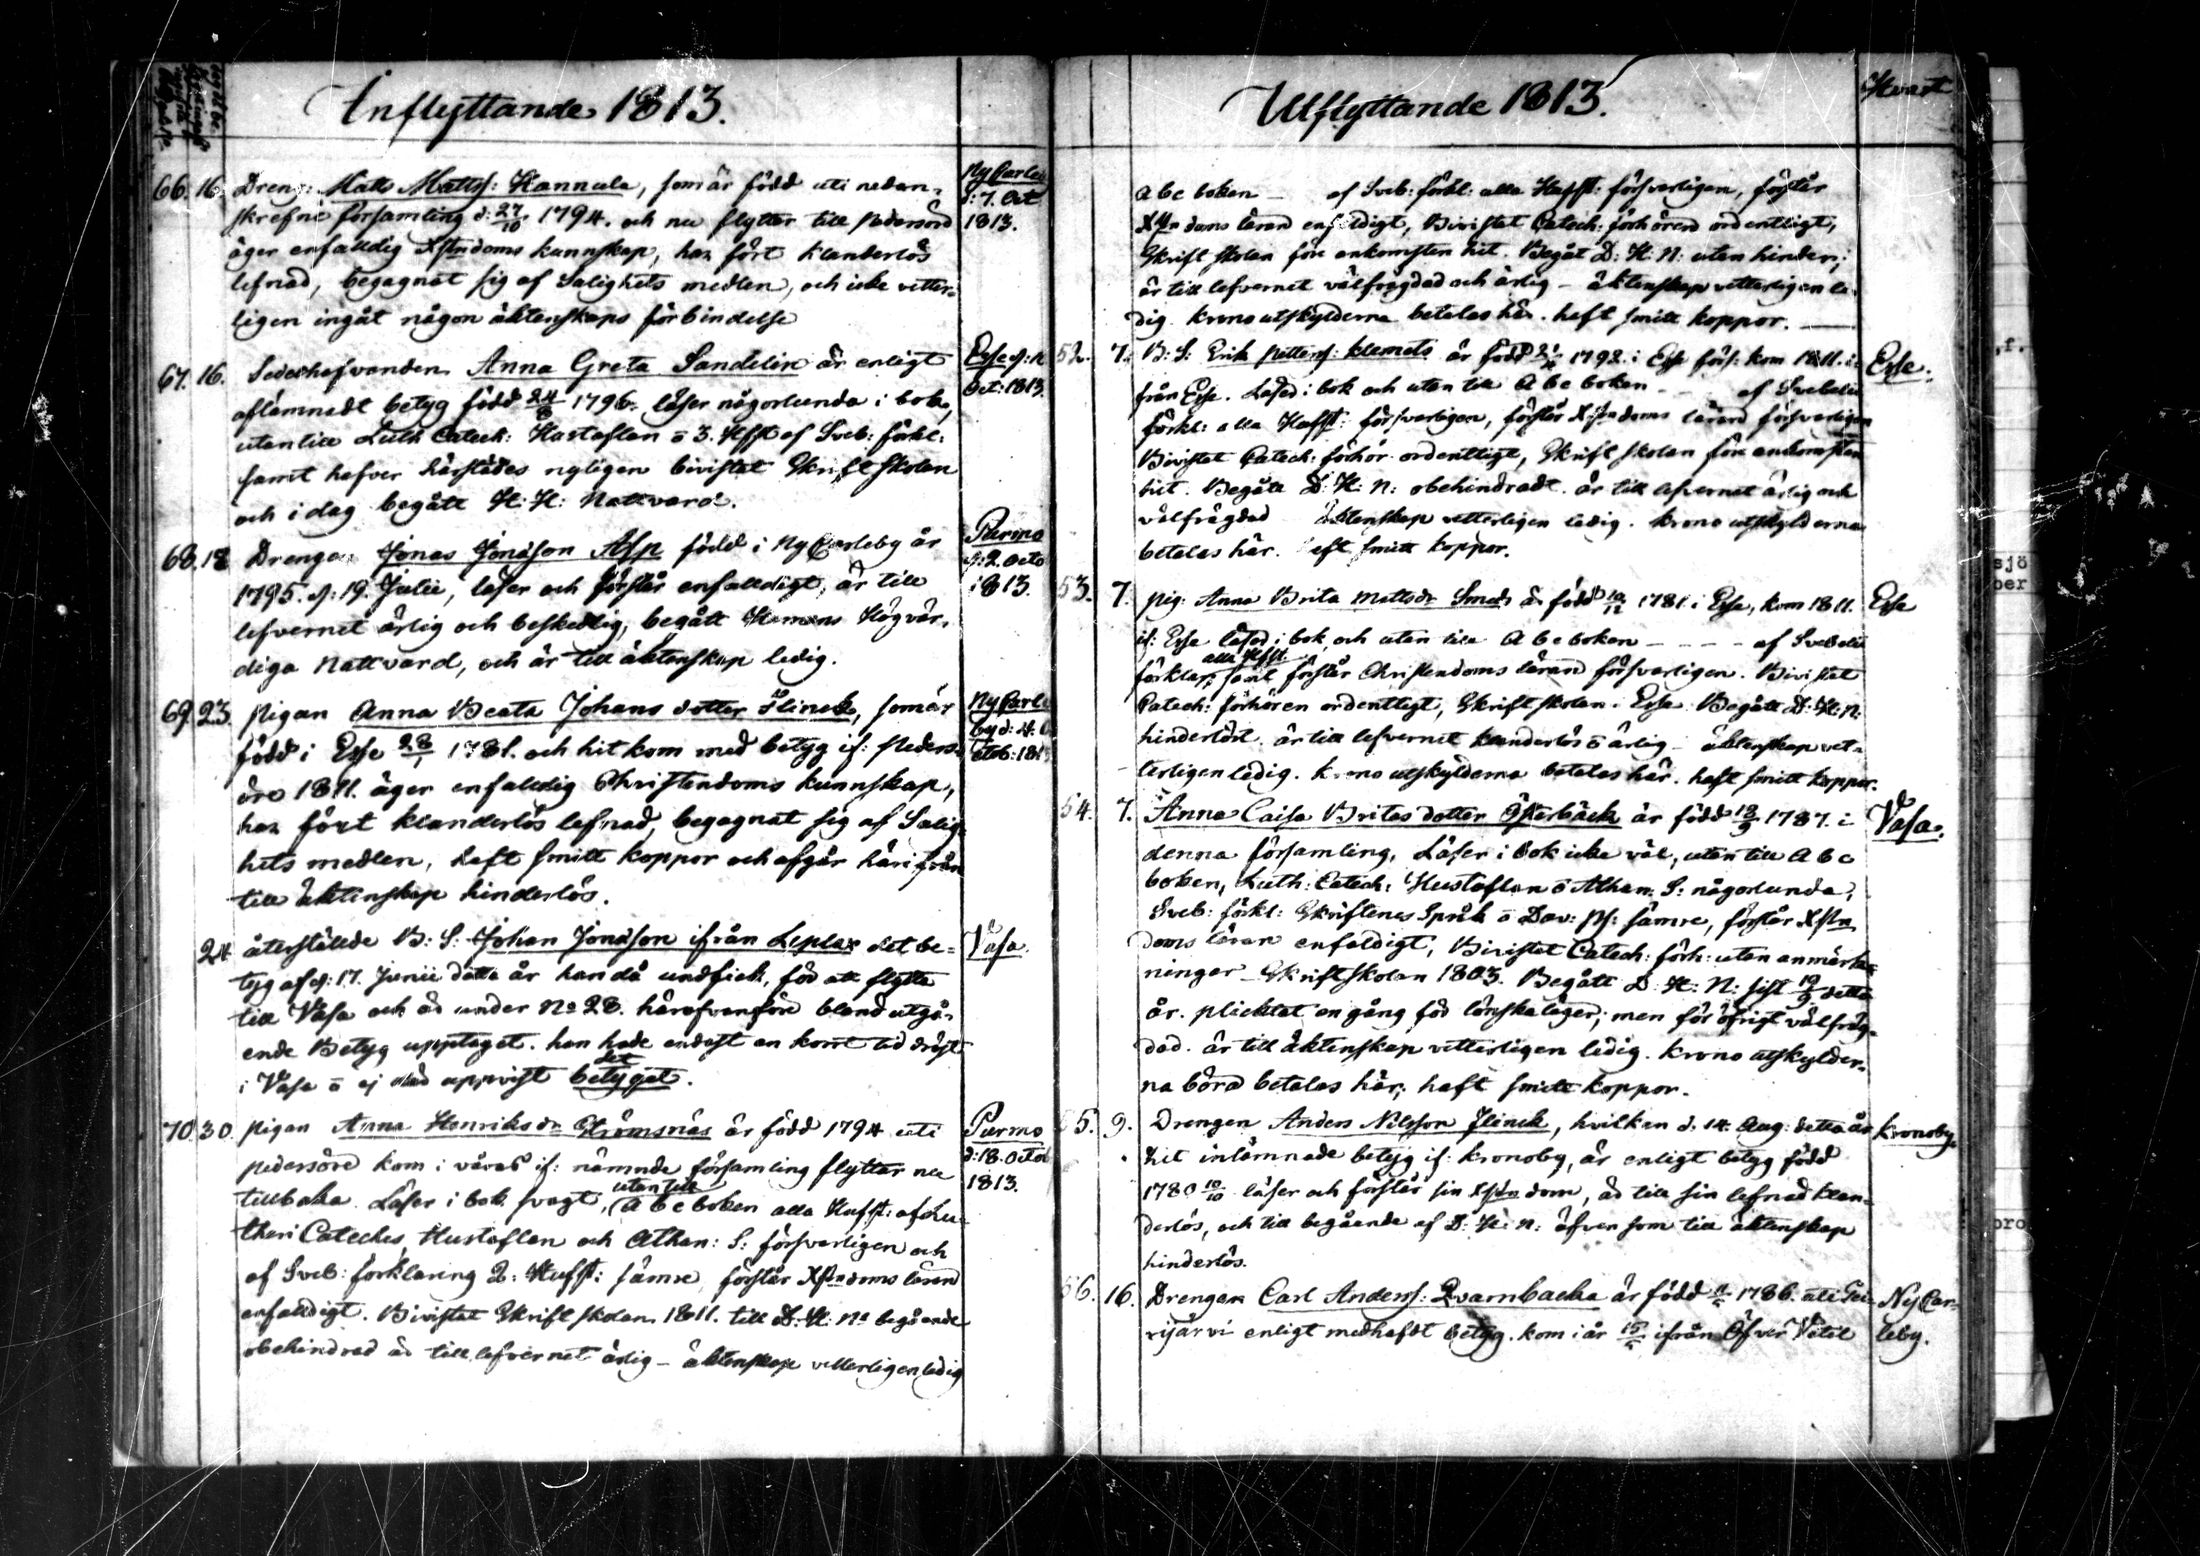 Inflyttande 1813.
66. 16. Dreng: Matts Matts: Hannula, som är född uti nedan-
skrefne församling d: 27/10 1794. och nu flytter till Pedersöre
äger enfalldig Xstndoms kunnskap, har fört klanderlös
lefnad, begagnat sig af Salighets medlen, och icke vetter-
ligen ingåt någon äktenskaps förbindelse
Ny Carleb
d: 7. Oct
1813.
67. 16. Anna Greta Sandelin är enligt
aflämnadt betyg född 24/8 1796. läser någorlunda i bok,
utantill Luth Catech: Hustaflan o 3. Hfst af Sveb: förkl:
samt hafver härstädes nyligen bivistat Skriftskolan
och i dag begått H: H: Nattvard.
Esse d: 11
Oct: 1813
68. 18 Drengen Jonas Jonsson Asp född i NyCarleby år
1795. d: 19. Julii, läser och förstår enfalldigt, är till
lefvernet ärlig och beskedlig, begått Herrans Högvär-
diga Nattvard, och är till äktenskap ledig.
Purmo
d: 2. Octo
1813.
69. 23. Pigan Anna Beata Johans dotter Flinck, som är
född i Esse 28/1 1781. och hit kom med betyg if: Peders-
öre 1811. äger enfalldig Christendoms kunnskap,
har fört klanderlös lefnad, begagnat sig af Salig-
hets medlen, haft smitt koppor och afgår härifrån
till äktenskap hinderlös.
Ny Carle
by d: 4. O
ctob: 181
24 återställde B: S: Johan Jonsson ifrån Lepplax det be-
tyg af d: 17. Junii detta år han då undfick, för att flytta
till Vasa och är under No 28. härofvanföre bland utgå-
ende Betyg upptaget. han hade endast en kort tid dröjt
i Vasa o ej där uppvist det betyget.
Vasa.
70 30. Pigan Anna Henriksdr Strömsnäs är född 1794 uti
Pedersöre kom i våras if: nämnde församling flyttar nu
tillbaka. Läser i bok svagt, utantill A b c boken alla Hufst: af Lu-
theri Cateches Hustaflan och Athan: S: försvarligen och
af Sveb: förklaring 2: Hufst: sämre, förstår Xstndoms läran
enfalldigt. Bivistat Skriftskolan 1811. till D: H: No begående
obehindrad är till lefvernet ärlig – äktenskap vetterligen ledig
Purmo
d: 18. Octob
1813.
Utflyttande 1813.
Hvart
a b c boken – af Sveb: förkl: alla Hufst: försvarligen, förstår
Xstndoms läran enfaldigt, Bivistat Catech: förhören ordentligt,
Skriftskolan före ankomsten hit. Begåt D: H: N: utan hinder;
är till lefvernet välfrägdad och ärlig – äktenskap vetterligen le-
dig. Krono utskylderna betalas här. haft smitt koppor.
52. 7. B: S: Erik Petters: Klemets är född 1792. i Esse förs: kom 1811. i-
från Esse. Läser i bok och utan till A b c boken – af Svebelii
förkl: alla Hufst: försvarligen, förstår Xstndoms läran försvarligen
Bivistat Catech: förhör ordentligt, Skriftskolan före ankomsten
hit. Begått D: H: N: obehindradt. är till lefvernet ärlig och
välfrägdad äktenskap vetterligen ledig. Krono utskylderna
betalas här. haft smitt koppor.
Esse.
53. 7. Pig: Anna Brita Mattsdr Smeds är född 10/12 1781. i Esse, kom 1811.
if: Esse läser i bok, och utan till A b c boken – – – – af Svebelii
förklar: alla Hfst samt förstår Christendoms läran försvarligen. Bivistat
Catech: förhören ordentligt, Skriftskolan i Esse. Begått D: H: N:
hinderlöst. är till lefvernet klanderlös o ärlig – äktenskap vet-
terligen ledig. Krono utskylderna betalas här. haft smitt koppor.
Esse
54. 7. Anna Caisa Britas dotter Österbäck är född 18/9 1787. i
denna församling. Läser i bok icke väl, utan till A b c
boken, Luth: Catech: Hustaflan o Athan: S: någorlunda,
Sveb: förkl: Skriftenes Språk o Dav: Ps: sämre, förstår Xstn
doms läran enfaldigt, Bivistat Catech: förh: utan anmärk-
ningar – Skriftskolan 1803. Begått D. H: N: sist 19/9 detta
år. plicktat en gång för lönskaläger; men för öfrigt välfräg-
dad. är till äktenskap vetterligen ledig. Krono utskylder-
na böra betalas här; haft smitt koppor.
Vasa.
55. 9. Drengen Anders Nilsson Flinck, hvilken d. 14. Aug: detta år
hit inlämnade betyg if: Kronoby, är enligt betyg född
1780 10/10 läser och förstår sin Xstndom, är till sin lefnad klan-
derlös, och till begående af D: H: N: äfven som till äktenskap
hinderlös.
Kronoby.
56. 16. Drengen Carl Anders: Qvarnbacka är född 1786. uti
enligt medhafdt betyg. kom i år ifrån Öfver Vetil
Ny Car-
leby.